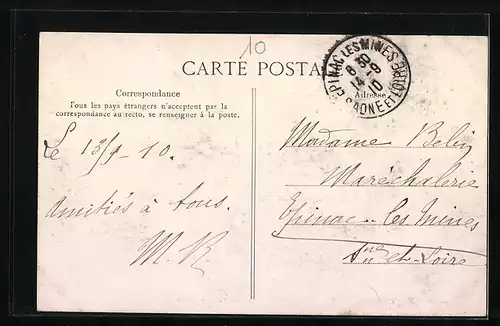 10
CARTE POSTALE
EPINAC LES MINES
8 30
14 -9
10
SAONE ET LOIRE
Correspondance
Tous les pays étrangers n'acceptent pas la
correspondance au recto, se renseigner à la poste.
Adresse
Le 13/9 - 10.
Amitiés à tous.
M R
Madame Belin
Maréchalerie
Epinac - les mines
Sne et-Loire